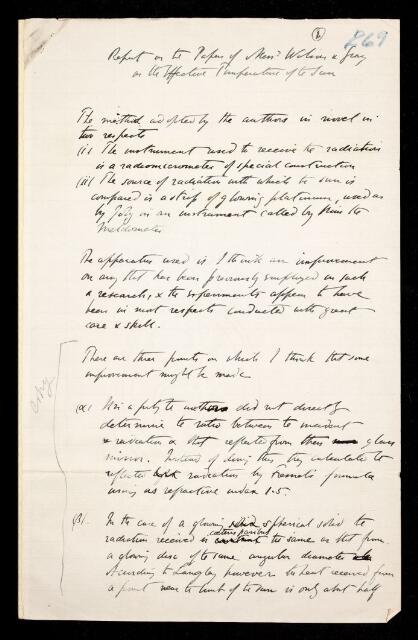 (1) 269
Report on the Papers of Messrs Wilson & Gray
on the Effective Temperature of the Sun
The method adopted by the authors is novel in
two respects
(i) The instrument used to receive the radiation
is a radiomicrometer of special construction
(ii) The source of radiation with which the sun is
compared is a strip of glowing platinum, used as
by Joly in an instrument called by him the
Meldometer
The apparatus used is I think an improvement
on any that has been previously employed in such
a research, & the experiments appear to have
been in most respects conducted with great
care & skill.
There are three points on which I think that some
improvement might be made
copy
(α) It is a pity the authors did not directly
determine the ratio between the incident
radiation & that reflected from their glass
mirror. Instead of doing this they calculate the
reflected radiation by Fresnel's formula
using as refractive index 1.5.
(β). In the case of a glowing solid spherical solid the
radiation received is ceteris paribus the same as that from
a glowing disc of the same angular diameter
According to Langley however the heat received from
a point near the limb of the sun is only about half